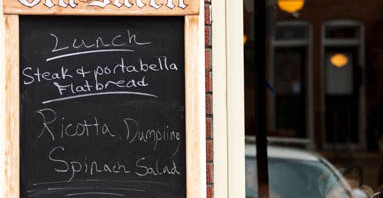 Lunch
Steak & portabella
Flatbread
Ricotta Dumpling
Spinach Salad